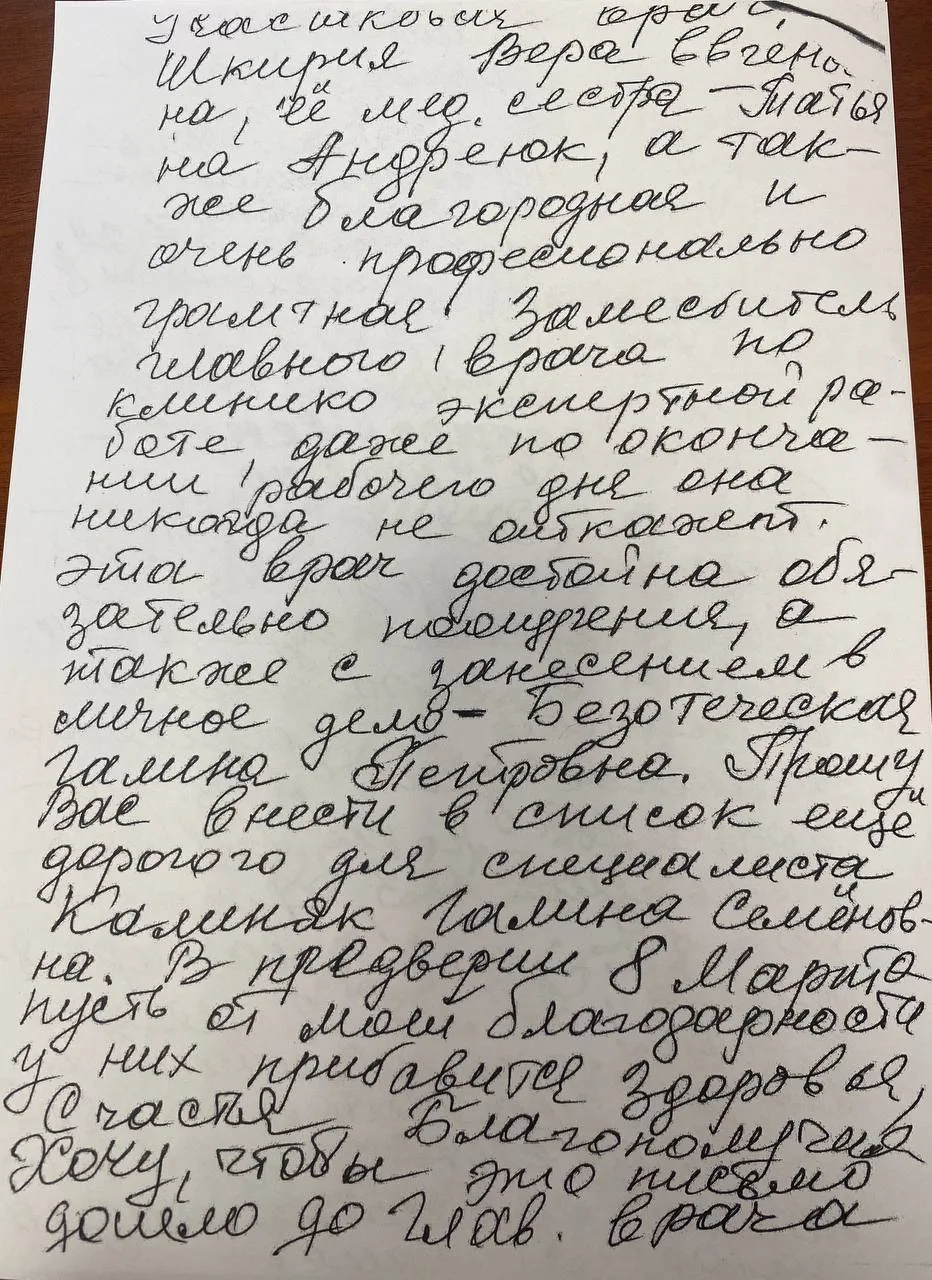 участковый врач,
Шкирия Вера Евгень
на, её мед. сестра - Татья
на Андреюк, а так-
же благородная и
очень професионально
грамтная Заместитель
главного врача по
клинико экспертной ра-
боте, даже по оконча-
нии рабочего дня она
никогда не откажет.
эта врач достойна обя-
зательно поощрения, а
также с занесением в
личное дело - Безотеческая
Галина Петровна. Прошу
Вас внести в список ещё
дорогого для специалиста
Калиняк Галина Семёнов-
на. В предверии 8 Марта
пусть от моей благодарности
у них прибавится Здоровья,
Счастья Благополучия
Хочу, чтобы это письмо
дошло до Глав. врача